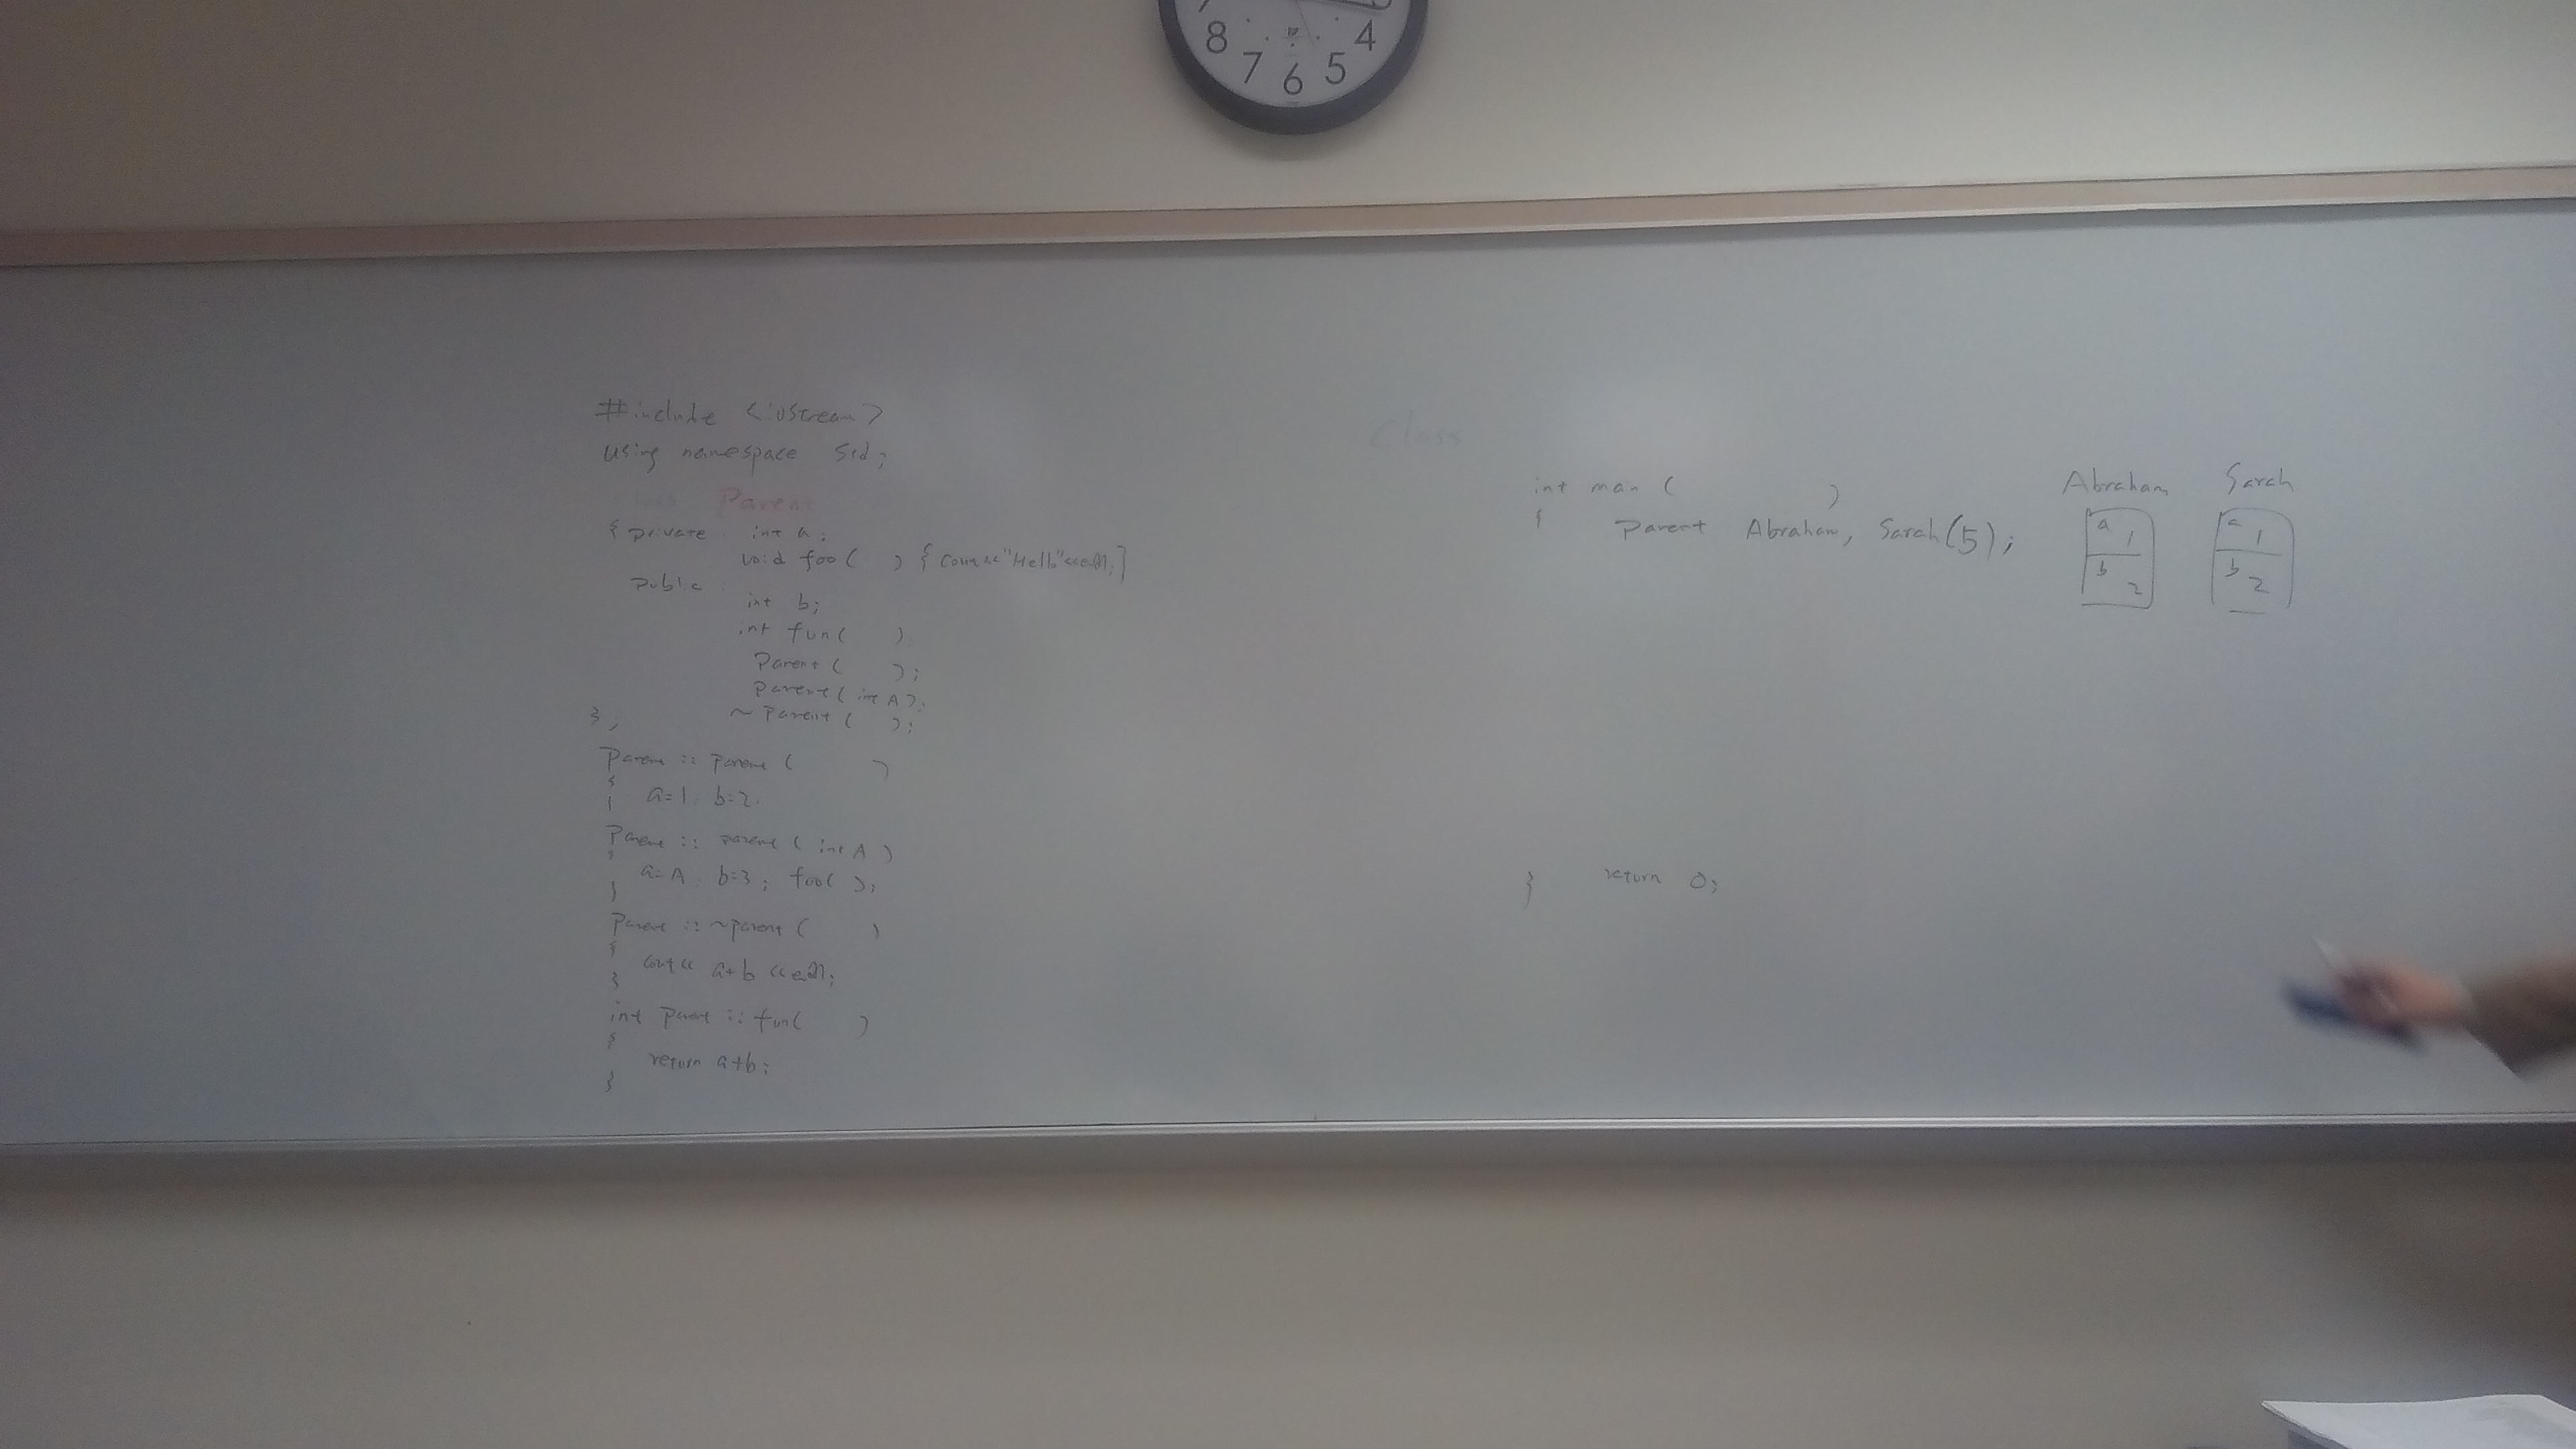 8 7 6 5 4
#include <iostream>
using namespace std;
class Parent
{ private int a;
void foo( ) { cout<<"Hello"<<endl;}
public
int b;
int fun( )
Parent( );
Parent( int A );
~ Parent ( );
};
Parent :: Parent ( )
{
a=1 b=2
}
Parent :: Parent ( int A )
{
a=A b=3; foo( );
}
Parent :: ~Parent ( )
{
cout<< a+b <<endl;
}
int Parent :: fun( )
{
return a+b;
}
Class
int main ( )
{ Parent Abraham, Sarah(5);
} return 0;
Abraham Sarah
a 1 a 1
b 2 b 2